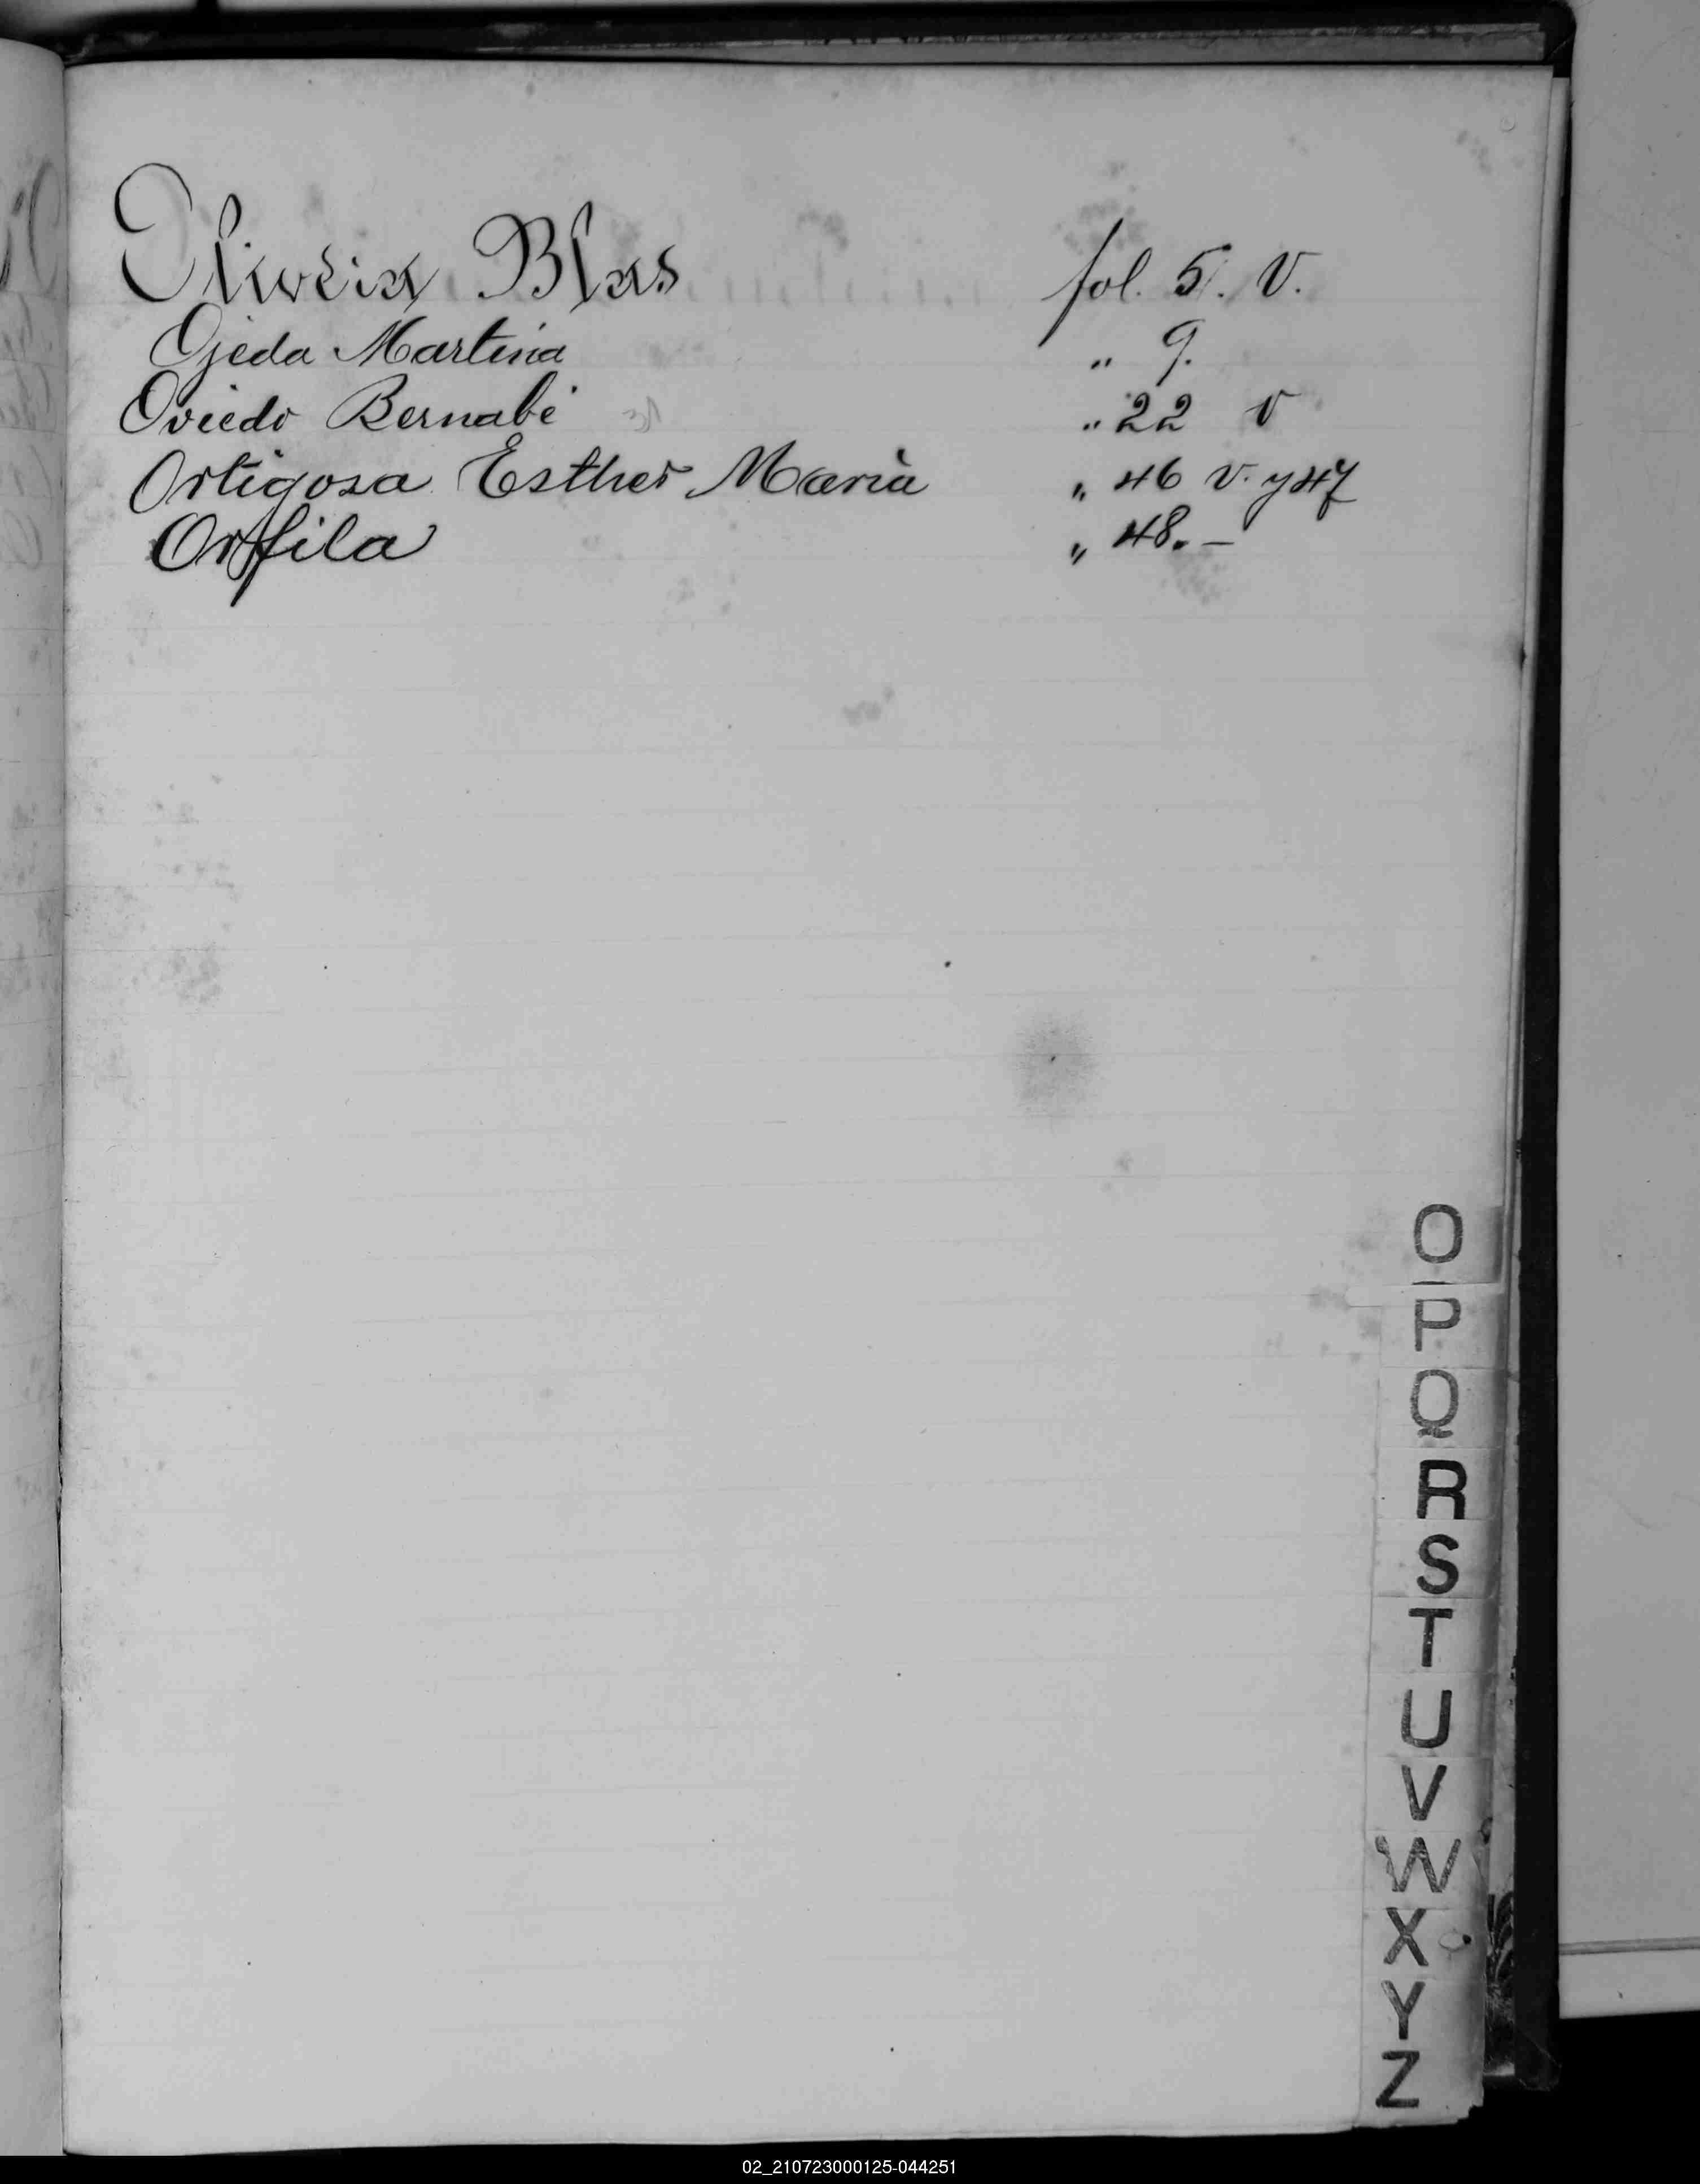 Oliveira Blas fol. 5. V.
Ojeda Martina " 9.
Oviedo Bernabé " 22 v
Ortigosa Esther Maria " 46 v. y 47
Orfila " 48. –
O
P
Q
R
S
T
U
V
W
X
Y
Z
02_210723000125-044251